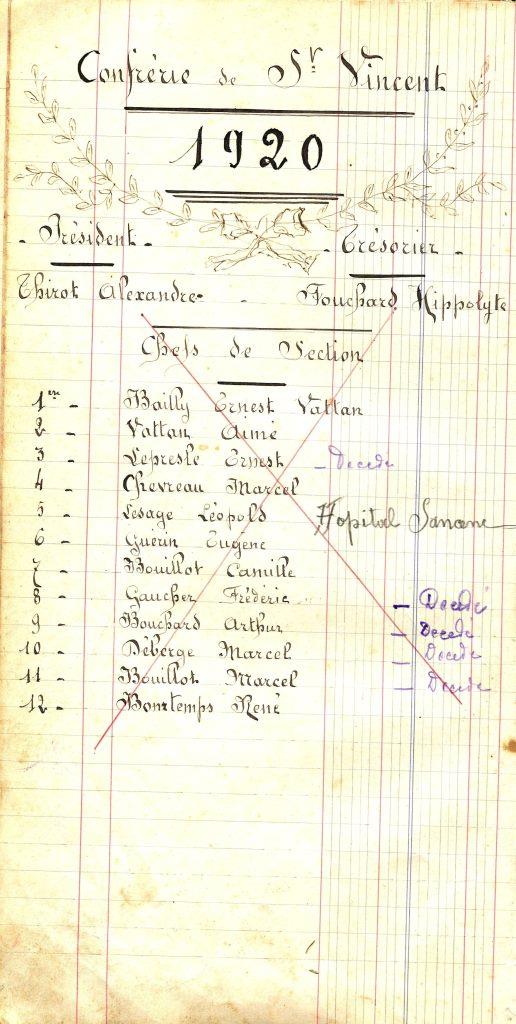 Confrérie de St Vincent
1920
- Président - - Trésorier -
Thirot Alexandre - - Fouchard Hippolyte
Chefs de Section
1er - Bailly Ernest Vattan
2 - Vattan Aimé
3 - Lepresle Ernest - Decede
4 - Chevreau Marcel
5 - Lesage Léopold Hopital
6 - Guérin Eugène
7 - Bouillot Camille
8 - Gaucher Fréderic - Decedé
9 - Bouchard Arthur - Decedé
10 - Déberge Marcel - Decede
11 - Bouillot Marcel - Decede
12 - Bontemps René